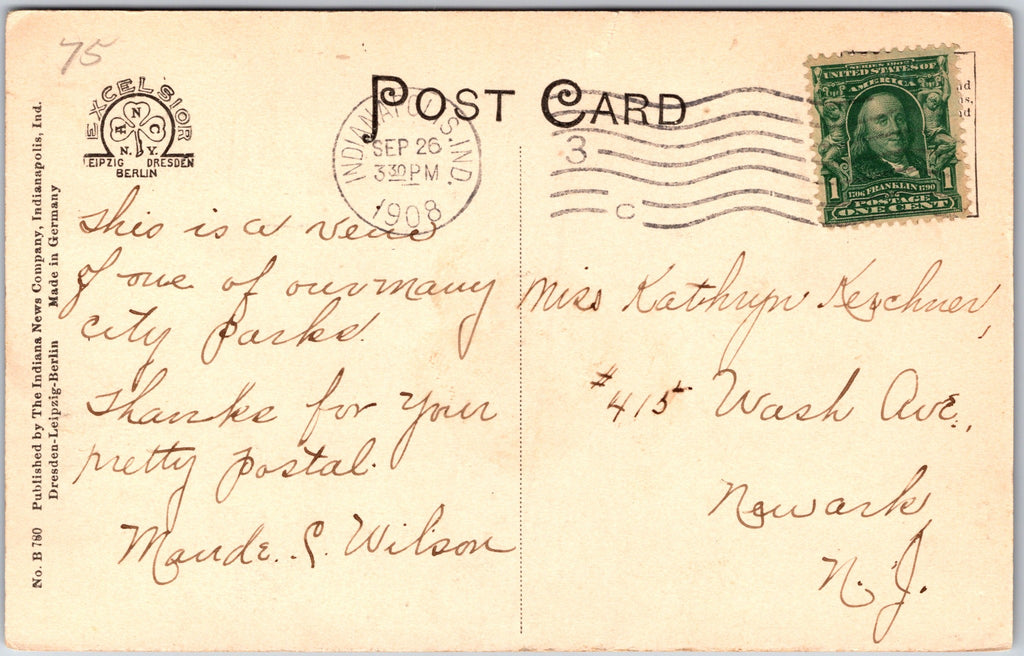 75
EXCELSIOR
A N C
N.Y.
LEIPZIG DRESDEN
BERLIN
POST CARD
INDIANAPOLIS, IND.
SEP 26
3 30 PM
1908
3
C
SERIES 1902
UNITED STATES OF
AMERICA
1 1
1706 FRANKLIN 1790
POSTAGE
ONE CENT
No. B 760 Published by The Indiana News Company, Indianapolis, Ind.
Dresden-Leipzig-Berlin Made in Germany
This is a view
of one of our many
city parks.
Thanks for your
pretty postal.
Maude C. Wilson
Miss Kathryn Kerchner,
#415 Wash Ave.,
Newark
N.J.